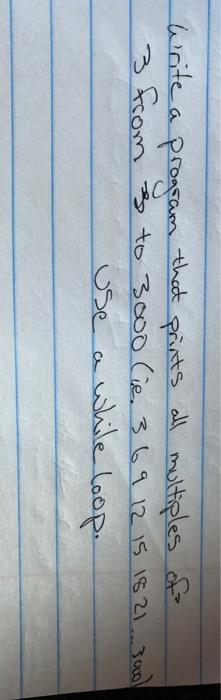 Write a program that prints all multiples of
3 from 3 to 3000 (ie. 3 6 9 12 15 18 21 ... 3000)
Use a while loop.